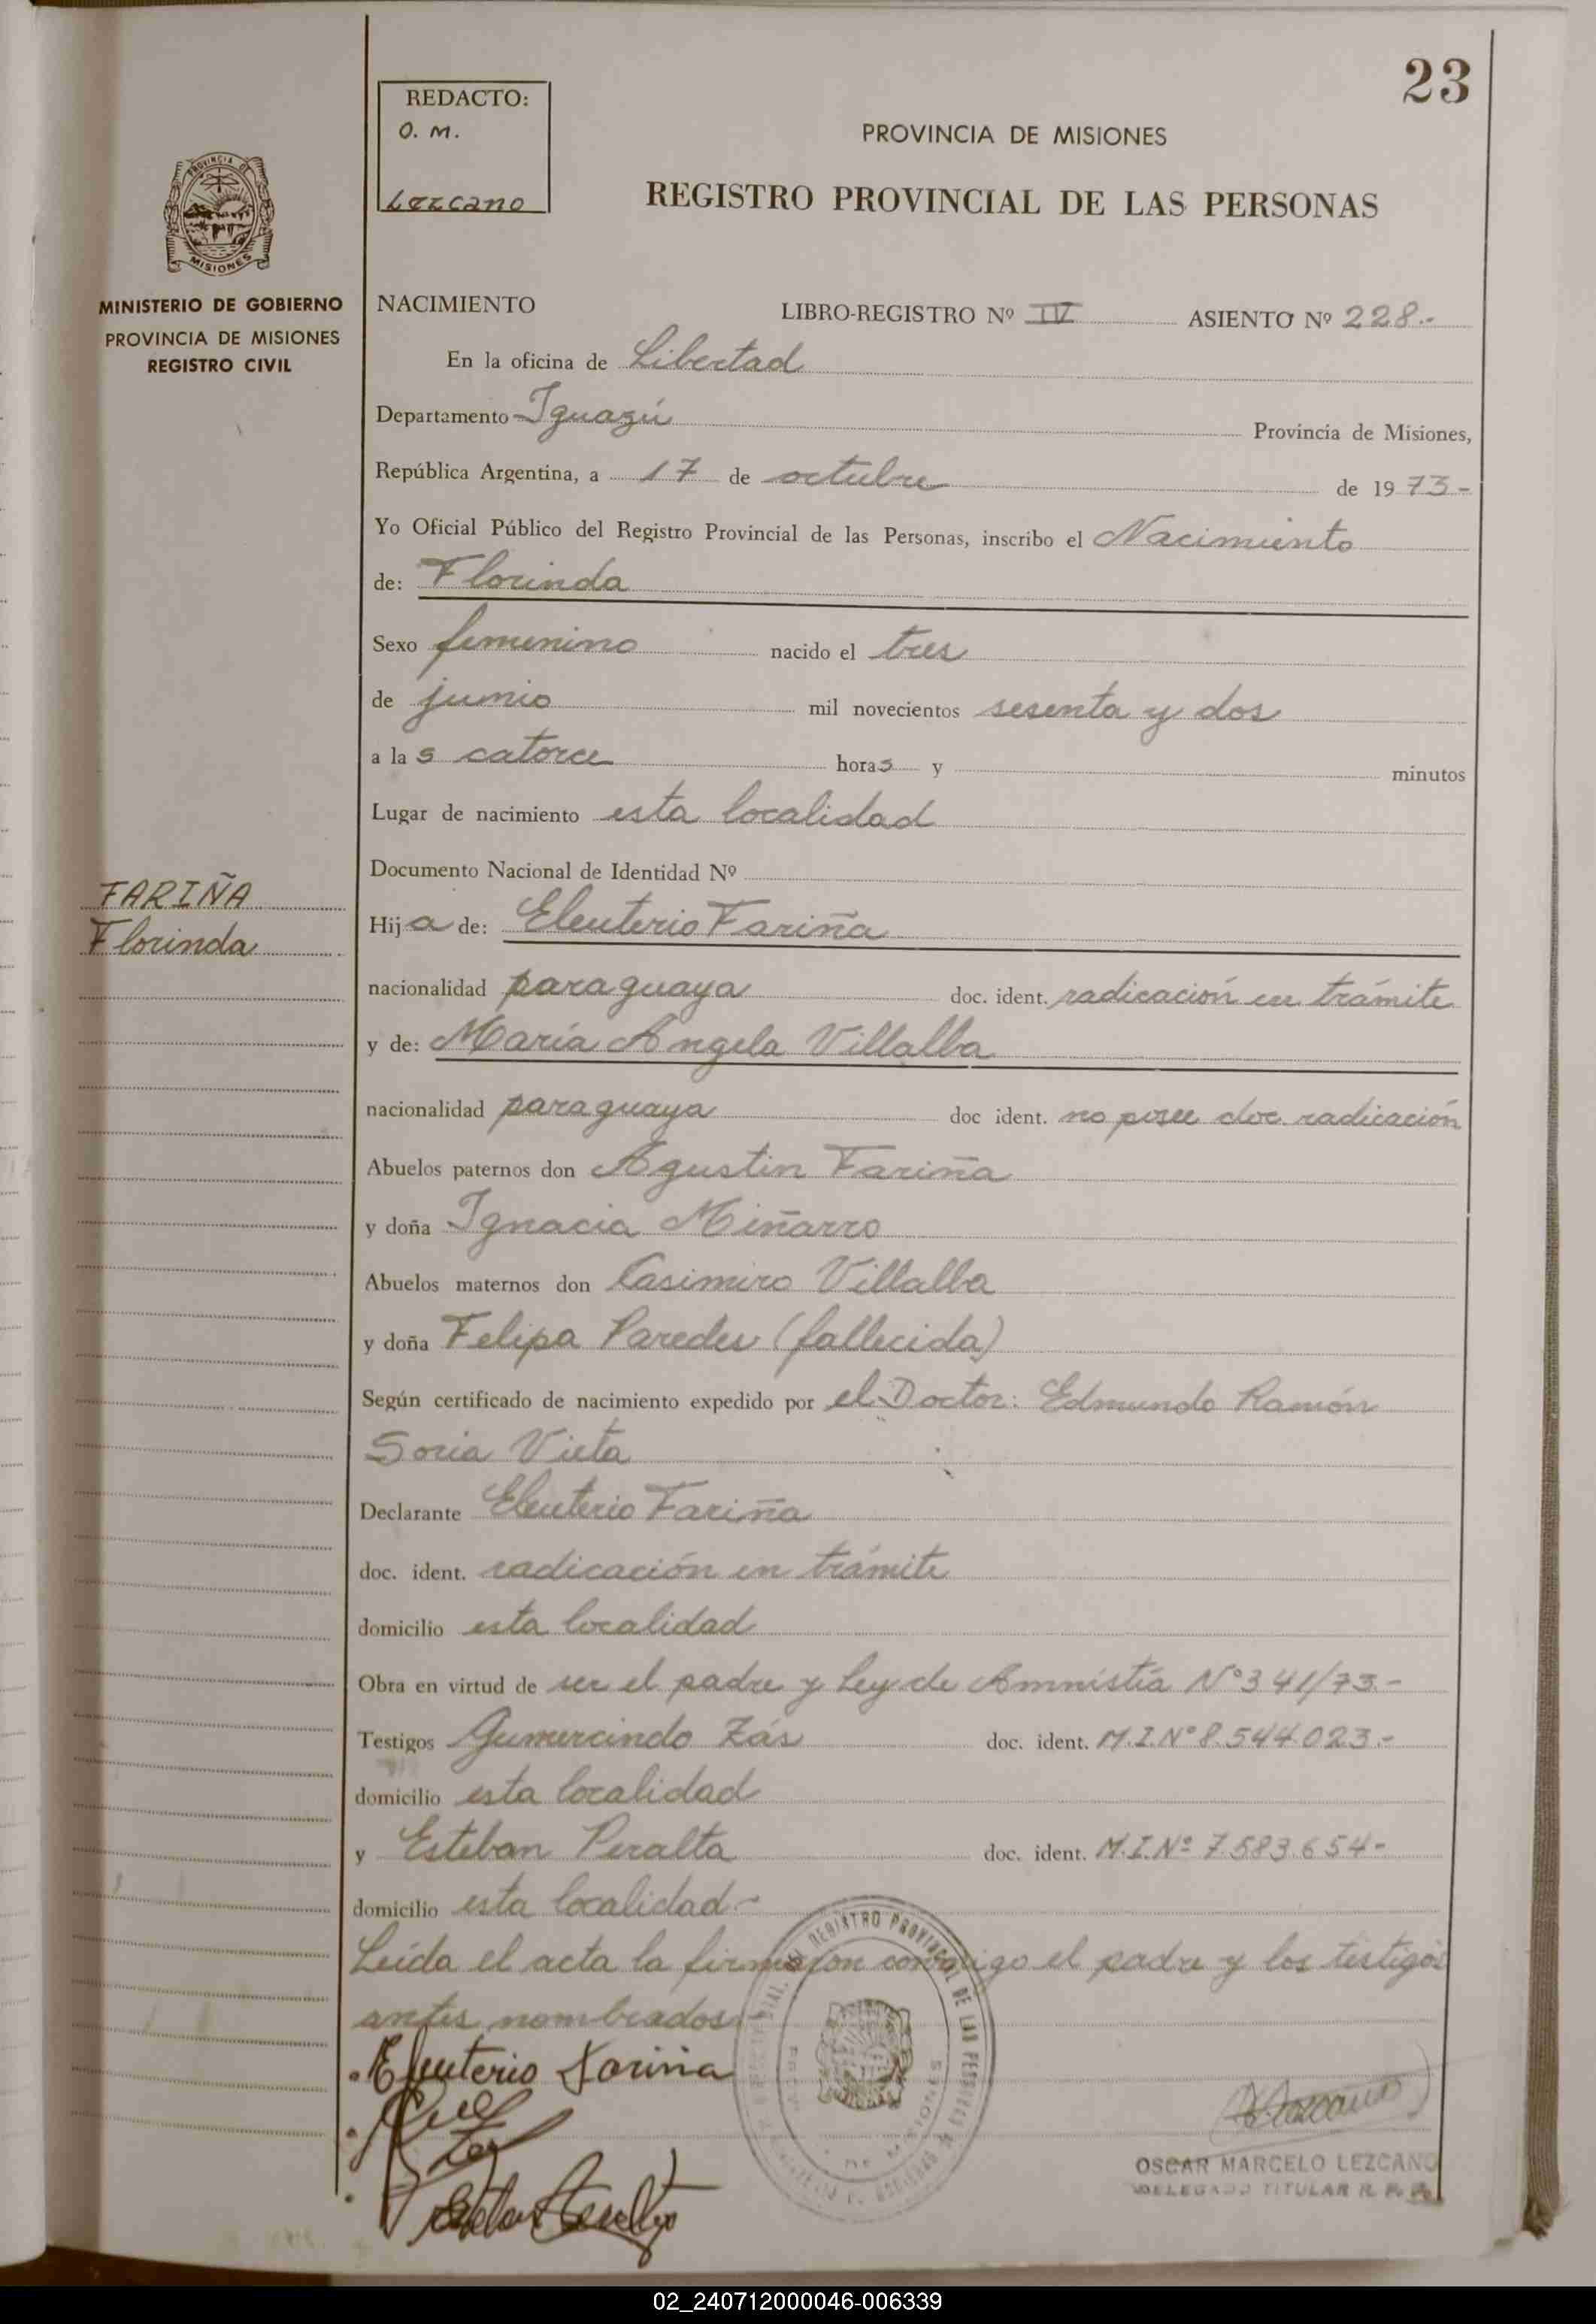 23
REDACTO:
O. M.
Lezcano
PROVINCIA DE MISIONES
REGISTRO PROVINCIAL DE LAS PERSONAS
PROVINCIA DE
MISIONES
MINISTERIO DE GOBIERNO
PROVINCIA DE MISIONES
REGISTRO CIVIL
NACIMIENTO LIBRO-REGISTRO Nº IV ASIENTO Nº 228.-
En la oficina de Libertad
Departamento Iguazú Provincia de Misiones,
República Argentina, a 17 de octubre de 1973-
Yo Oficial Público del Registro Provincial de las Personas, inscribo el Nacimiento
de: Florinda
Sexo femenino nacido el tres
de junio mil novecientos sesenta y dos
a las catorce horas y minutos
Lugar de nacimiento esta localidad
Documento Nacional de Identidad Nº
FARIÑA
Florinda
Hija de: Eleuterio Fariña
nacionalidad paraguaya doc. ident. radicación en trámite
y de: María Angela Villalba
nacionalidad paraguaya doc ident. no posee doc. radicación
Abuelos paternos don Agustin Fariña
y doña Ignacia Miñarro
Abuelos maternos don Casimiro Villalba
y doña Felipa Paredes (fallecida)
Según certificado de nacimiento expedido por el Doctor: Edmundo Ramón
Soria Vieta
Declarante Eleuterio Fariña
doc. ident. radicación en trámite
domicilio esta localidad
Obra en virtud de ser el padre y Ley de Amnistía Nº 341/73.-
Testigos Gumercindo Zás doc. ident. M.I.Nº 8.544.023.-
domicilio esta localidad
y Esteban Peralta doc. ident. M.I.Nº 7.583.654-
domicilio esta localidad.-
Leída el acta la firmaron conmigo el padre y los testigos
antes nombrados.-
REGISTRO PROVINCIAL DE LAS PERSONAS
MISIONES
Eleuterio Fariña
OSCAR MARCELO LEZCANO
DELEGADO TITULAR R. P. P.
02_240712000046-006339